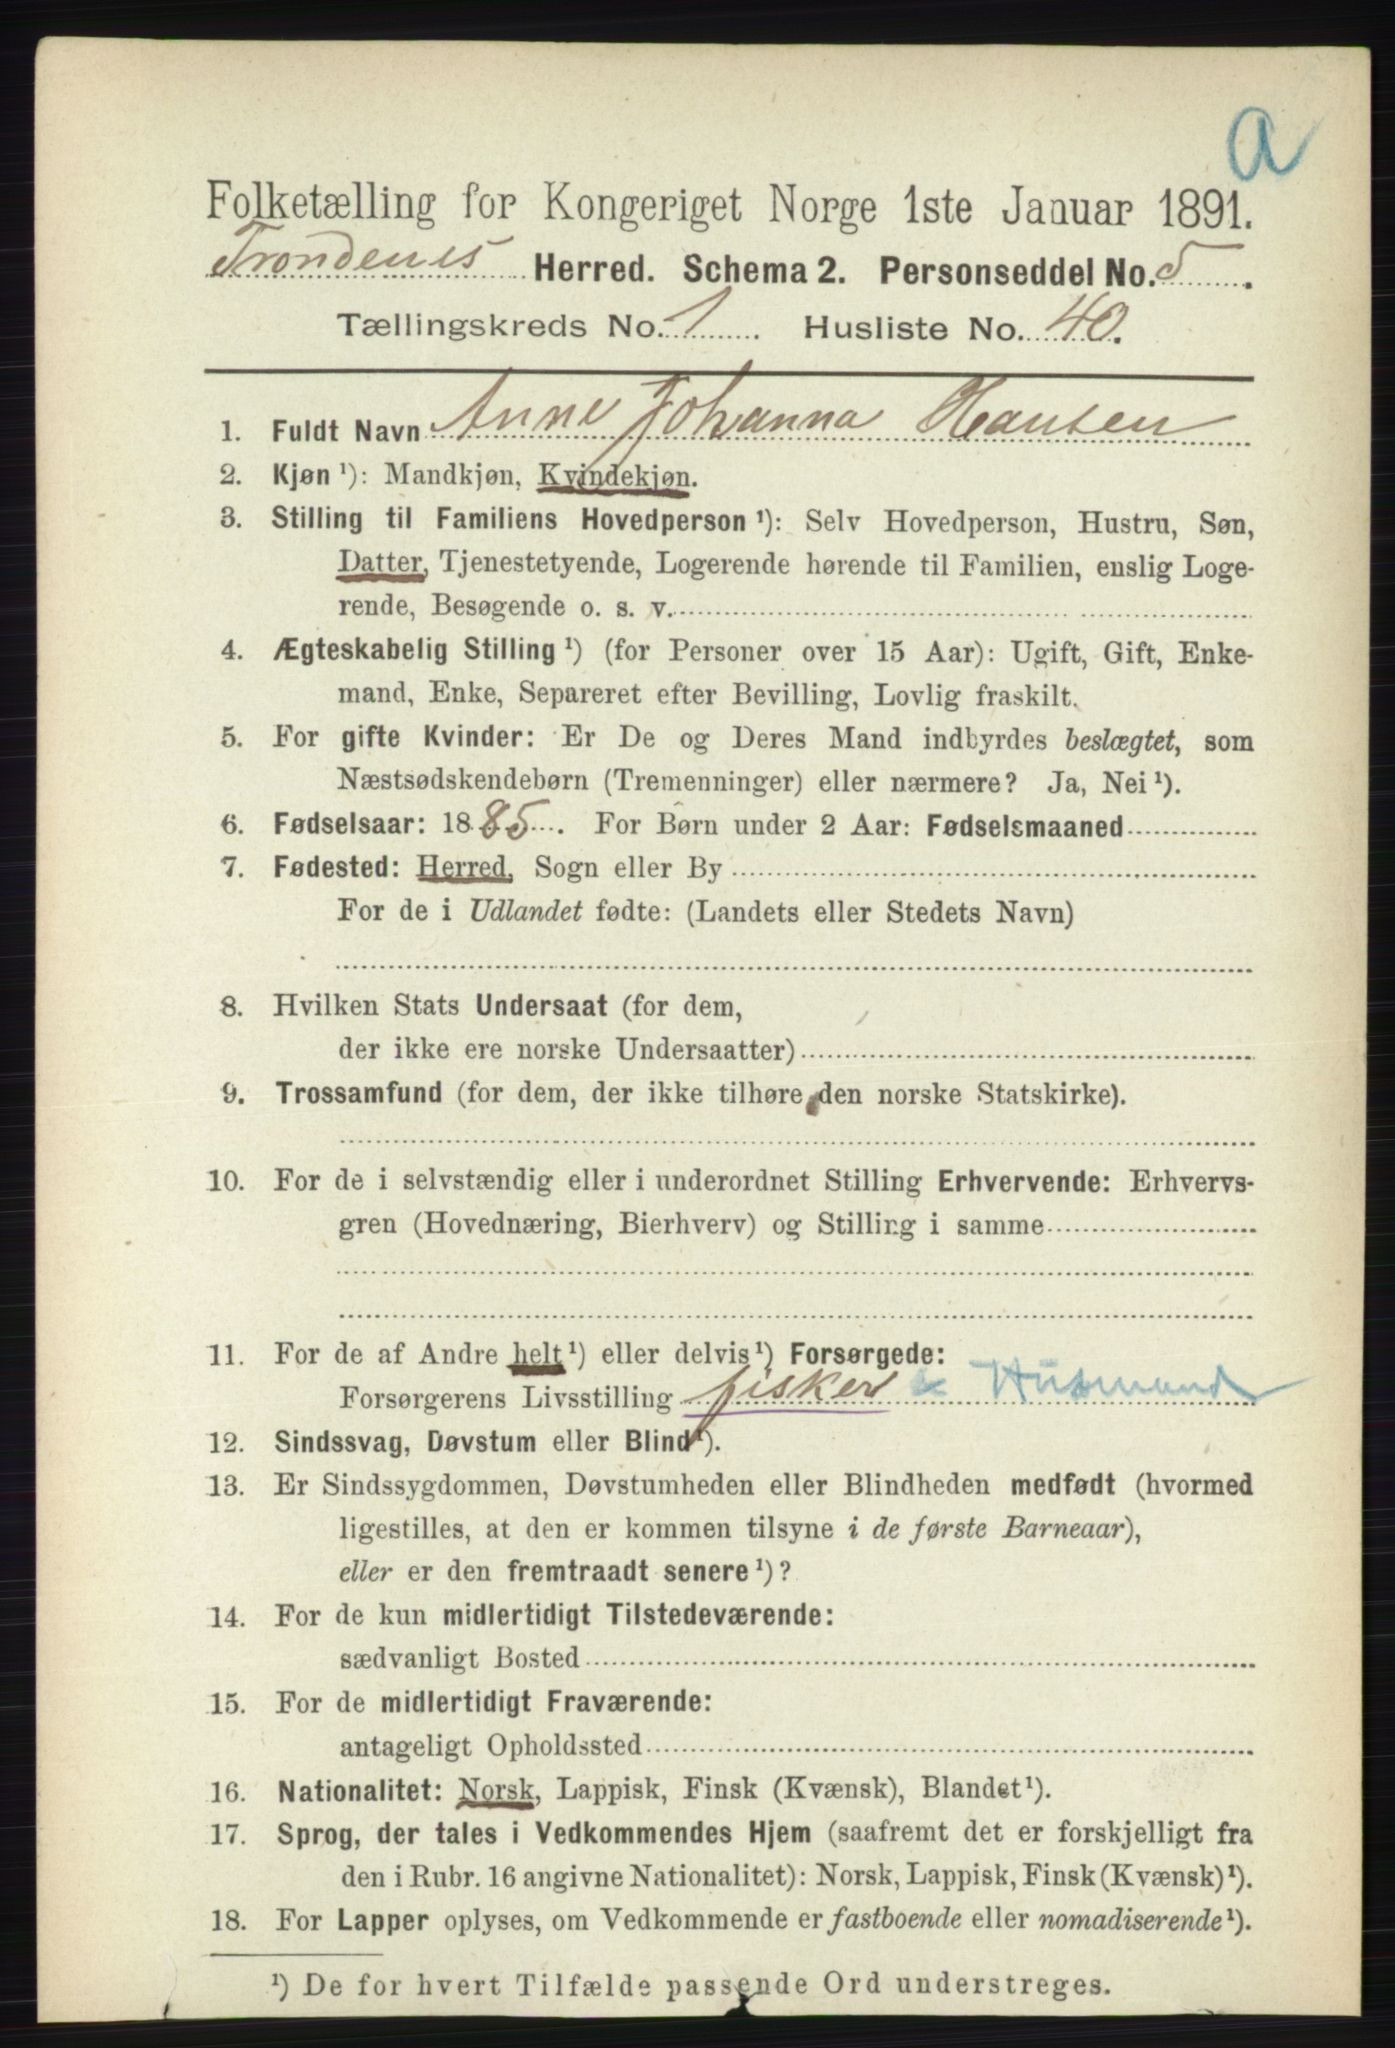 a
Folketælling for Kongeriget Norge 1ste Januar 1891.
Trondenes Herred. Schema 2. Personseddel No. 5.
Tællingskreds No. 1. Husliste No. 40.
1. Fuldt Navn Anne Johanna Hansen
2. Kjøn ¹): Mandkjøn, Kvindekjøn.
3. Stilling til Familiens Hovedperson ¹): Selv Hovedperson, Hustru, Søn,
Datter, Tjenestetyende, Logerende hørende til Familien, enslig Loge-
rende, Besøgende o. s. v.
4. Ægteskabelig Stilling ¹) (for Personer over 15 Aar): Ugift, Gift, Enke-
mand, Enke, Separeret efter Bevilling, Lovlig fraskilt.
5. For gifte Kvinder: Er De og Deres Mand indbyrdes beslægtet, som
Næstsødskendebørn (Tremenninger) eller nærmere? Ja, Nei ¹).
6. Fødselsaar: 1885. For Børn under 2 Aar: Fødselsmaaned
7. Fødested: Herred, Sogn eller By
For de i Udlandet fødte: (Landets eller Stedets Navn)
8. Hvilken Stats Undersaat (for dem,
der ikke ere norske Undersaatter)
9. Trossamfund (for dem, der ikke tilhøre den norske Statskirke).
10. For de i selvstændig eller i underordnet Stilling Erhvervende: Erhvervs-
gren (Hovednæring, Bierhverv) og Stilling i samme
11. For de af Andre helt ¹) eller delvis ¹) Forsørgede:
Forsørgerens Livsstilling fisker & Husmand
12. Sindssvag, Døvstum eller Blind ¹).
13. Er Sindssygdommen, Døvstumheden eller Blindheden medfødt (hvormed
ligestilles, at den er kommen tilsyne i de første Barneaar),
eller er den fremtraadt senere ¹)?
14. For de kun midlertidigt Tilstedeværende:
sædvanligt Bosted
15. For de midlertidigt Fraværende:
antageligt Opholdssted
16. Nationalitet: Norsk, Lappisk, Finsk (Kvænsk), Blandet ¹).
17. Sprog, der tales i Vedkommendes Hjem (saafremt det er forskjelligt fra
den i Rubr. 16 angivne Nationalitet): Norsk, Lappisk, Finsk (Kvænsk) ¹).
18. For Lapper oplyses, om Vedkommende er fastboende eller nomadiserende ¹).
¹) De for hvert Tilfælde passende Ord understreges.